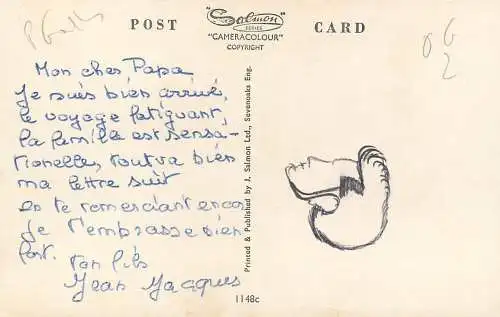 POST CARD
"Salmon"
SERIES
"CAMERACOLOUR"
COPYRIGHT
Mon cher Papa
Je suis bien arrivé,
le voyage fatiguant,
la famille est sensa-
tionelle, tout va bien
ma lettre suit
en te remerciant encore
Je t'embrasse bien
fort. Ton fils
Jean Jacques
Printed & Published by J. Salmon Ltd., Sevenoaks Eng.
1148c
06
2